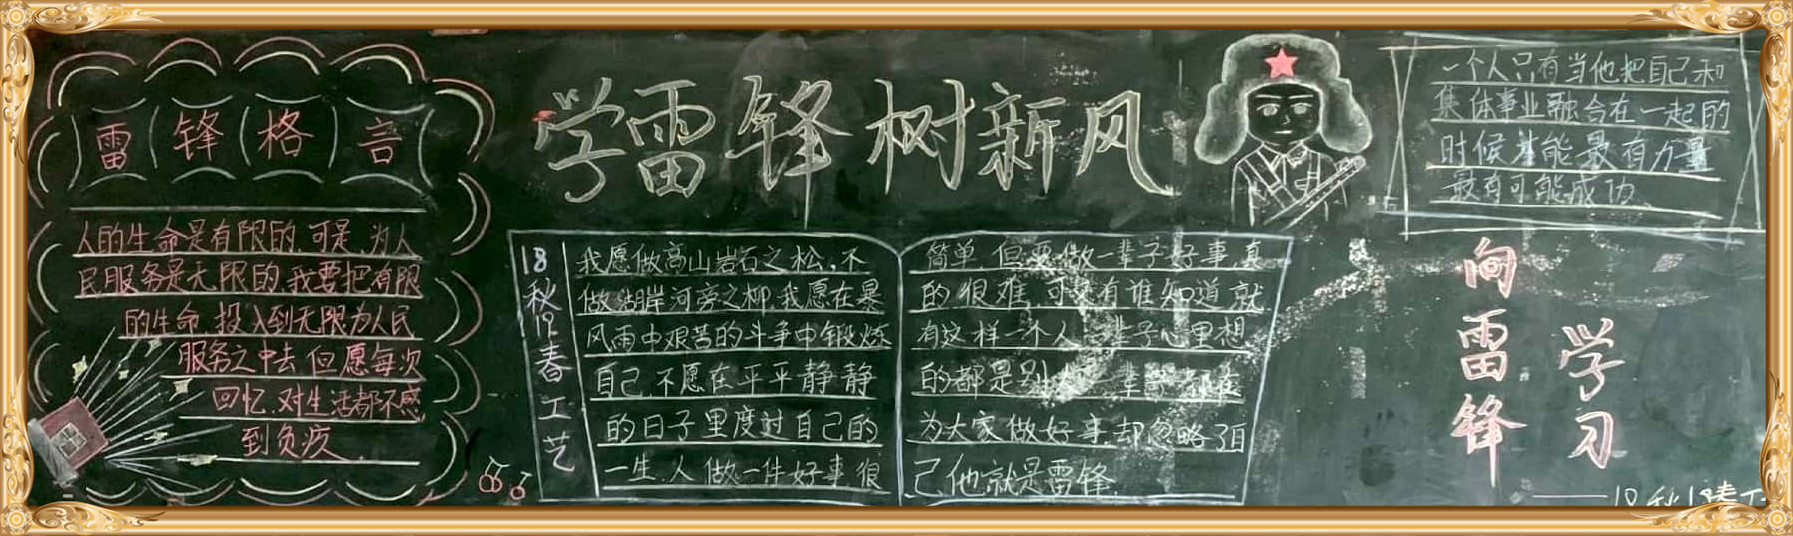 雷锋格言
人的生命是有限的,可是,为人
民服务是无限的,我要把有限
的生命,投入到无限为人民
服务之中去,但愿每次
回忆,对生活都不感
到负疚.
学雷锋树新风
18秋19春工艺
我愿做高山岩石之松,不
做湖岸河旁之柳,我愿在暴
风雨中艰苦的斗争中锻炼
自己,不愿在平平静静
的日子里度过自己的
一生.人做一件好事很
简单,但要做一辈子好事,真
的很难,可又有谁知道就
有这样一个人一辈子心里想
的都是别人一辈子都在
为大家做好事,却忽略了自
己,他就是雷锋.
一个人只有当他把自己和
集体事业融合在一起的
时候才能最有力量
最有可能成功.
向雷锋
学习